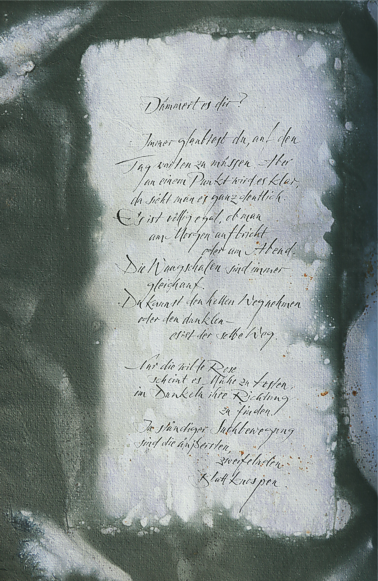 Dämmert es dir?
Immer glaubtest du, auf den
Tag warten zu müssen. Aber
an einem Punkt wird es klar,
da sieht man es ganz deutlich:
Es ist völlig egal, ob man
am Morgen aufbricht
oder am Abend.
Die Waagschalen sind immer
gleichauf.
Du kannst den hellen Weg nehmen
oder den dunklen –
es ist der selbe Weg.
Nur die wilde Rose
scheint es Mühe zu kosten,
im Dunkeln ihre Richtung
zu finden.
In ständiger Suchbewegung
sind die äußersten,
zweifelnden
Blattknospen